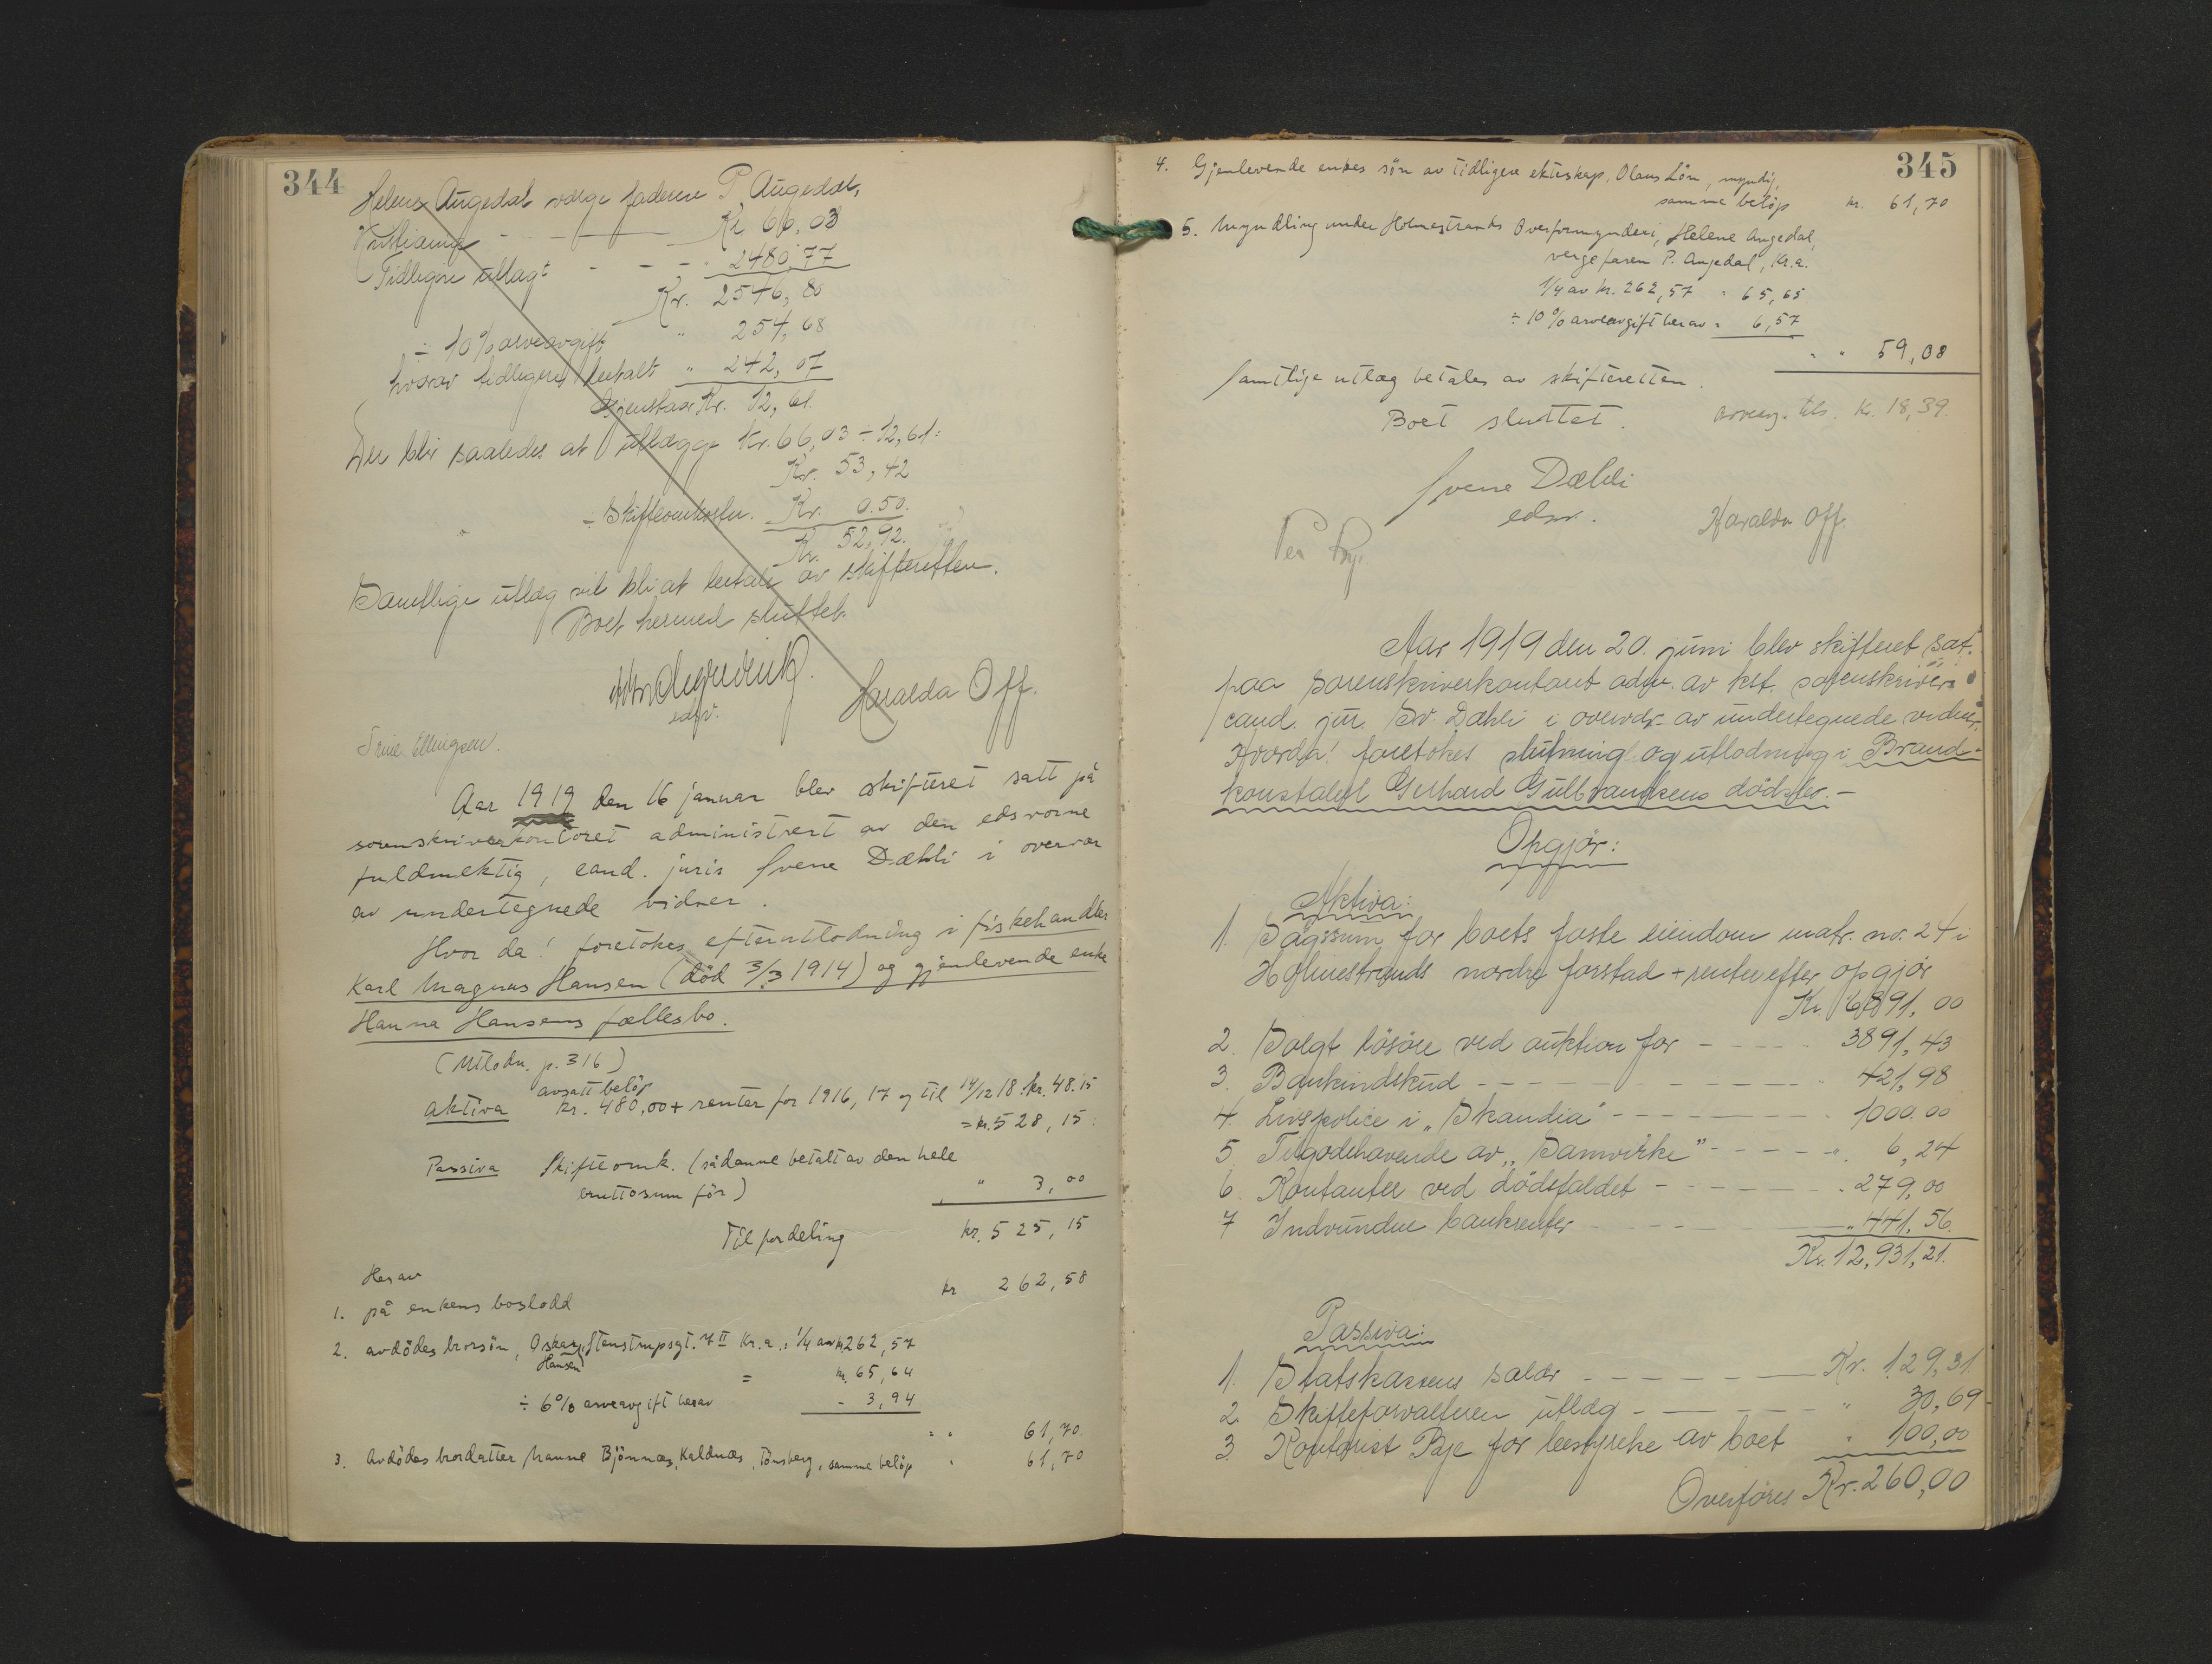 344
Helene Augedal værge faderen P. Augedal,
Kristiania - Kr. 66,03
Tidligere utlagt - - - " 2480,77
Kr. 2546,80
÷ 10% arveavgift " 254,68
hvorav tidligere betalt " 242,07
Gjenstaar Kr. 12,61.
Der blir saaledes at utlægge kr. 66,03 ÷ 12,61:
Kr. 53,42
÷ Skifteomkostn. Kr. 0.50.
Kr. 52,92.
Samtlige utlæg vil bli at betale av skifteretten.
Boet hermed sluttet.
edsv.
Haralda Off.
Trine Ellingsen.
Aar 1919 den 16 januar blev skifteret satt på
sorenskriverkontoret administrert av den edsvorne
fuldmektig, cand. juris Svene Dæhli i overvær
av undertegnede vidner.
Hvor da! foretokes efterutlodning i fiskehandler
Karl Magnus Hansen (död 3/3 1914) og gjenlevende enke
Hanna Hansens fællesbo.
(Utlodn. p. 316)
avsatt belöp
Aktiva kr. 480,00 + renter for 1916, 17 og til 14/12 18. kr. 48.15
= kr. 528,15.
Passiva Skifteomk. (sådanne betalt av den hele
bruttosum för) " 3,00
Til fordeling kr. 525,15
Herav
1. på enkens boslodd kr 262,58
2. avdödes brorsön, Oskar Hansen, Stenstrupsgt. 7 II Kr.a.: 1/4 av kr. 262,57
= kr. 65,64
÷ 6% arveavgift herav - 3,94
" " 61,70
3. Avdödes brordatter Nanne Björnnæs, Kaldnæs, Tönsberg, samme belöp " 61,70
345
4. Gjenlevende enkes sön av tidligere ekteskap, Olaus Lön, myndig,
samme belöp kr. 61,70
5. Myndling under Holmestrands Overformynderi, Helene Augedal,
verge faren P. Augedal, Kr.a.
1/4 av kr. 262,57 " 65,65
÷ 10% arveavgift herav " 6,57
" " 59,08
Samtlige utlæg betales av skifteretten.
Boet sluttet. arveavg. tils. Kr. 18,39.
Svene Dæhli
edsv.
Haralda Off.
Aar 1919 den 20. juni blev skifteret sat
paa sorenskriverkontoret adm. av kst. sorenskriver
cand. jur. Sv. Dæhli i overvær av undertegnede vidner.
Hvorda! foretokes slutning og utlodning i Brand-
konstabel Gerhard Gulbrandsens dödsbo.-
Opgjör:
Aktiva:
1. Salgssum for boets faste eiendom matr. nr. 24 i
Holmestrands nordre forstad + renter efter opgjör
Kr. 6891,00
2. Solgt lösöre ved auktion for - - - 3891,43
3. Bankindskud - - - " 421,98
4. Livspolice i „Skandia" - - - " 1000.00
5 Tilgodehavende av „Samvirke" - - - " 6,24
6. Kontanter ved dödsfaldet - - - " 279,00
7 Indvundne bankrenter - - - " 441,56.
Kr. 12,931,21.
Passiva:
1. Statskassens salær - - - Kr. 129,31
2. Skifteforvalteren utlæg - - - " 30,69
3. Kontorist Bye for bestyrelse av boet " 100,00
Overföres Kr. 260,00